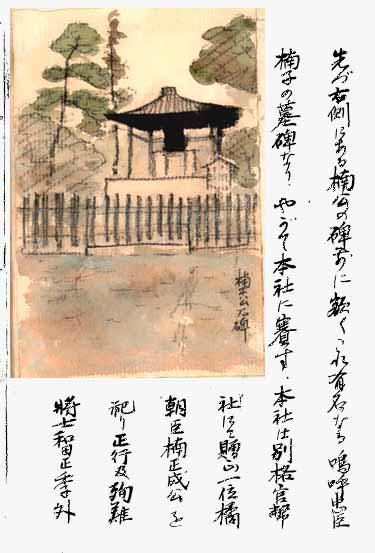 先づ右側にある楠公の碑前に額く、これ有名なる嗚呼忠臣
楠子の墓碑なり、やがて本社に賽す、本社は別格官幣
社にて贈正一位橘
朝臣楠正成公を
祀り正行及殉難
将士和田正季外
楠公石碑